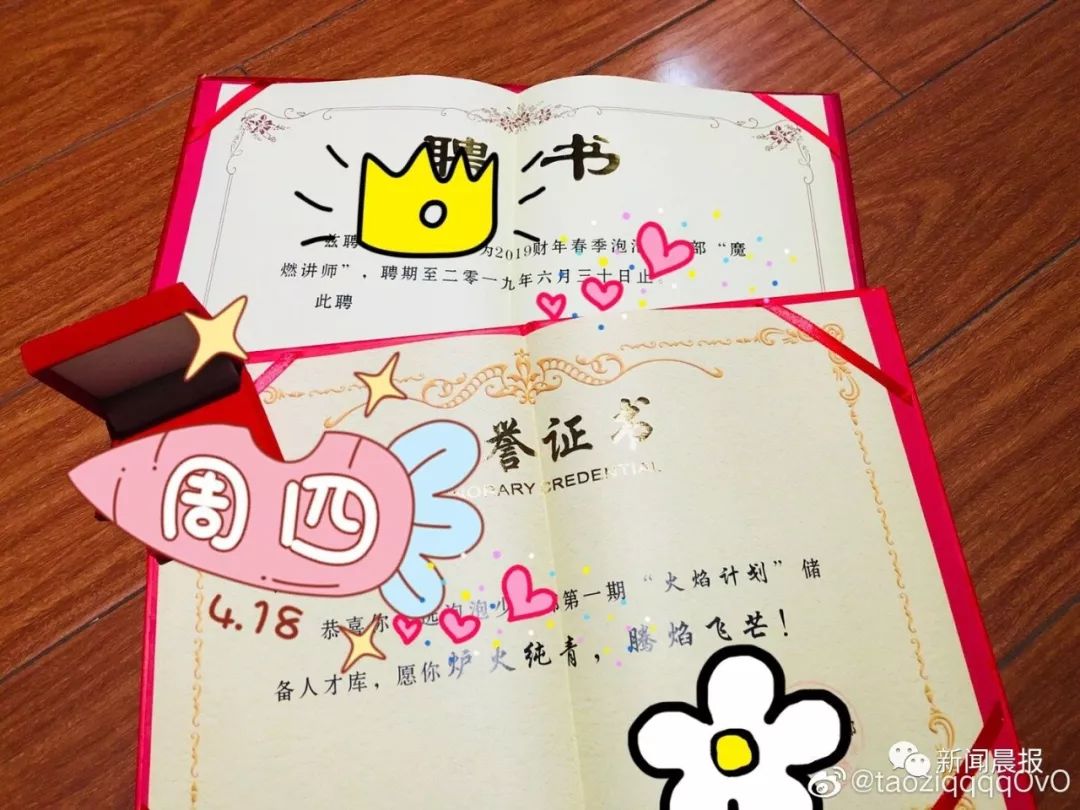 聘书
兹聘 为2019财年春季泡泡 部“魔
燃讲师”，聘期至二零一九年六月三十日止。
此聘
誉证书
ORARY CREDENTIAL
周四
4.18
恭喜你 选泡泡少 部第一期“火焰计划”储
备人才库，愿你炉火纯青，腾焰飞芒！
新闻晨报
@taoziqqqqOvO